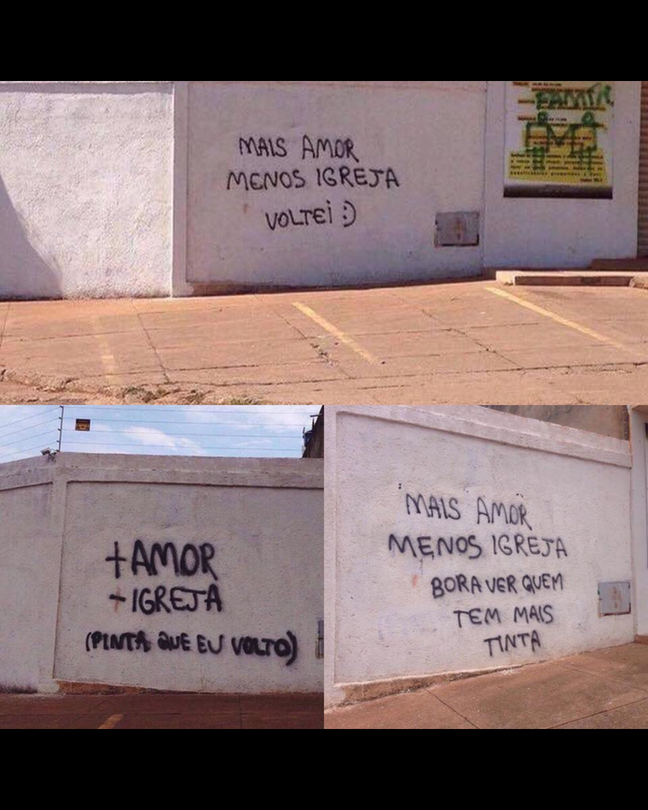 MAIS AMOR
MENOS IGREJA
VOLTEI :)
+ AMOR
- IGREJA
(PINTA QUE EU VOLTO)
MAIS AMOR
MENOS IGREJA
BORA VER QUEM
TEM MAIS
TINTA